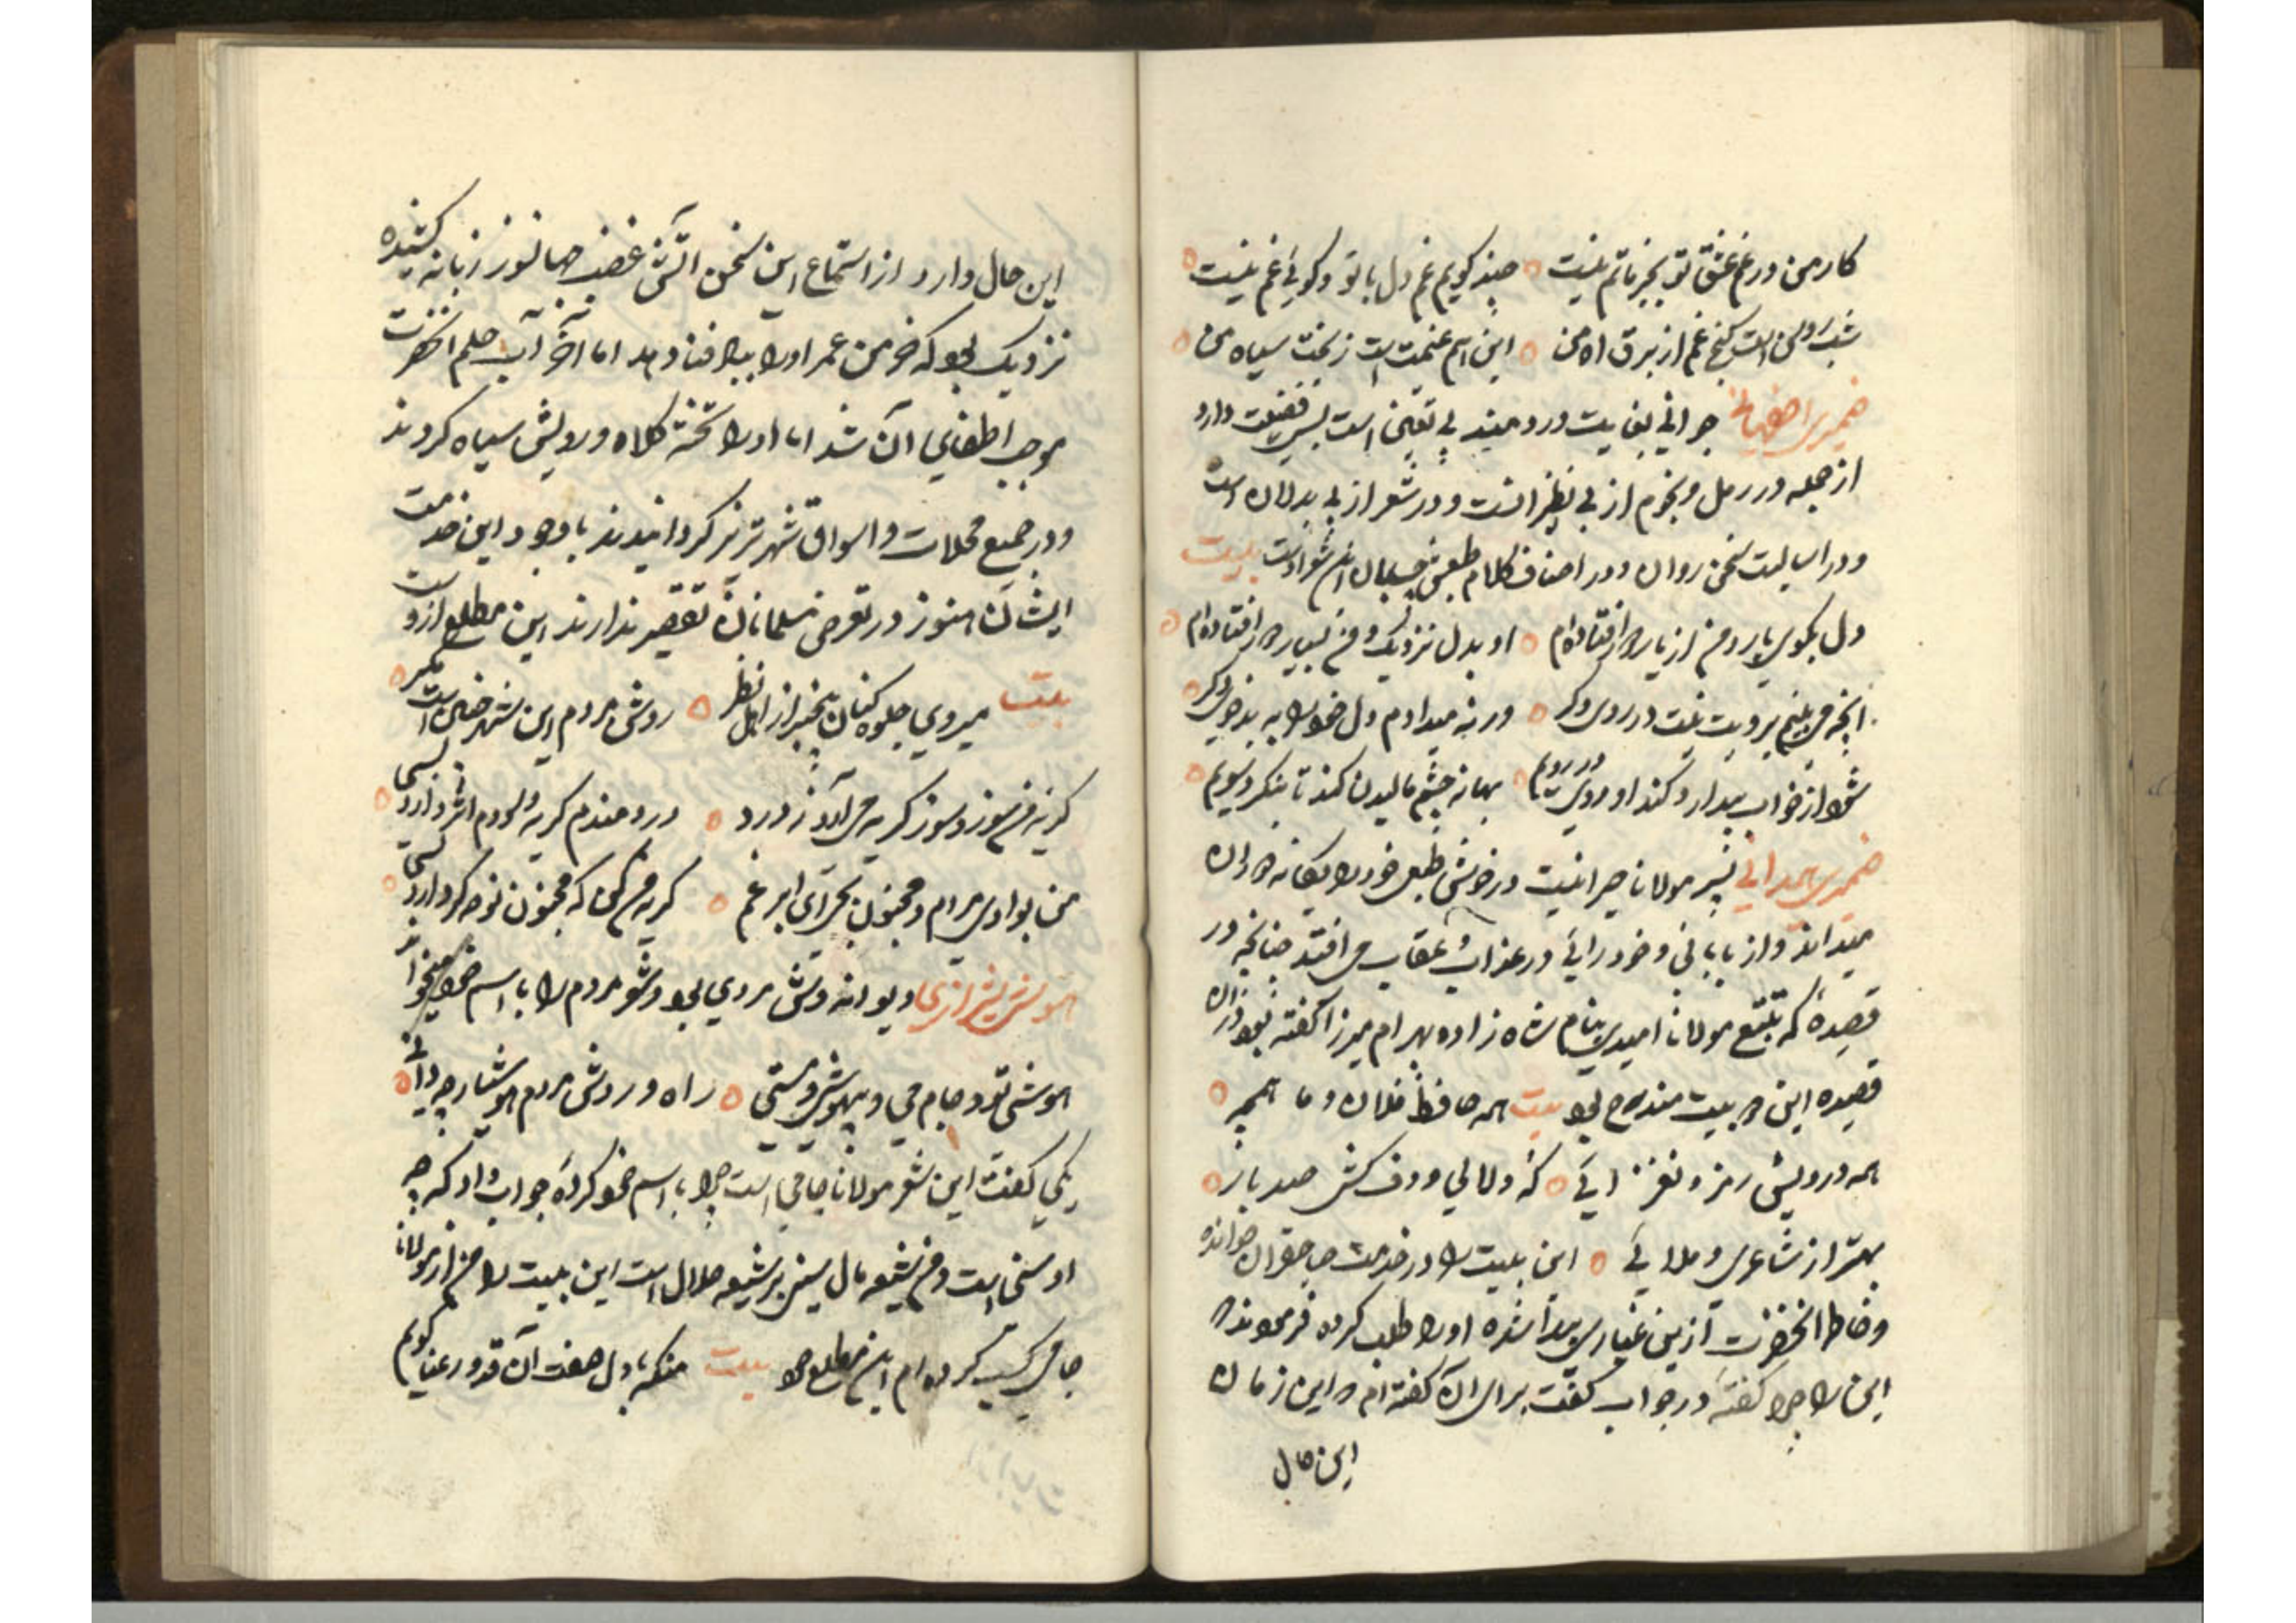 کار من در غم عشق تو بجز ماتم نیست چند کویم غم دل با تو و کوئی غم نیست
شب روشن است کنج غم از برق اه من این هم غنیمت است ز بخت سیاه من
ضمیری اصفهانی جوانی بغایت دردمند بی تعین است بس فضیلت دارد
از جمله در رمل و نجوم از بی نظیرانست و در شعر از بی بدلان است
و در اسالیب سخن روان و در اصناف کلام طبعش شعراست بیت
دل بکوی یار و من از یار دور افتاده‌ام او بدل نزدیک و من بسیار دور افتاده‌ام
انچه می بینم برویت نیست در روی دکر ورنه میدادم دل خود را به بدخوی دکر
شود از خواب بیدار و کند او روی در رویم بهانه چشم مالیدن کند تا ننکرد سویم
ضمیری همدانی پسر مولانا حیرانیست در خوش طبعی خود را یکانه دوران
میداند و از نابابی و خودرائی در عذاب و عقاب می افتد چنانچه در
قصیدهٔ که بتتبع مولانا امیدی بنام شاه زاده بهرام میرزا کفته بود دران
قصیده این دو بیت مندرج بود بیت همه حافظ فلان و ما همه
همه درویش رمز و نغز ائی که دلالی و دف کش صد بار
بهتر از شاعری و ملائی این بیت را در خدمت صاحبقران خوانده
و خاطر انحضرت ازین غباری پیدا شده او را طلب کرده فرمودند که
این را چرا کفتهٔ در جواب کفت برای ان کفته ام که این زمان
این حال
این حال دارد از استماع این سخن اتش غضب جهانسوز زبانه کشیده
نزدیک بود که خرمن عمر او را بباد فنا دهد اما آخر آب حلم انحضرت
موجب اطفای آن شد اما او را تخته کلاه و رویش سیاه کردند
و در جمیع محلات و اسواق شهر تبریز کردانیدند با وجود این خدمت
ایشان هنوز در تعرض مسلمانان تقصیر ندارند این مطلع ازوست
بیت میروی جلوه کنان بیخبر از اهل نظر روش مردم این شهر چنین است مکر
کریه من سوز و سوز کریه می آرد ز درد دردمندم کریه و دردم اثر دارد بسی
من بوادی مردم و مجنون بحرای ابر غم کریه می کن که مجنون نوحه کر دارد بسی
هوشی شیرازی دیوانه وش مردی بود و شعر مردم را با اسم خود میخواند
هوشی تو و جام می و بیهوشی و مستی راه و روش مردم هوشیار چه دانی
یکی کفت این شعر مولانا جامی است چرا باسم خود کردهٔ جواب داد که چه
او سنی است و من شیعه مال سنی بر شیعه حلال است این بیت را من از مولانا
جامی کسب کرده ام این مطلع هم بیت منکه با دل صفت ان قد رعنا کویم